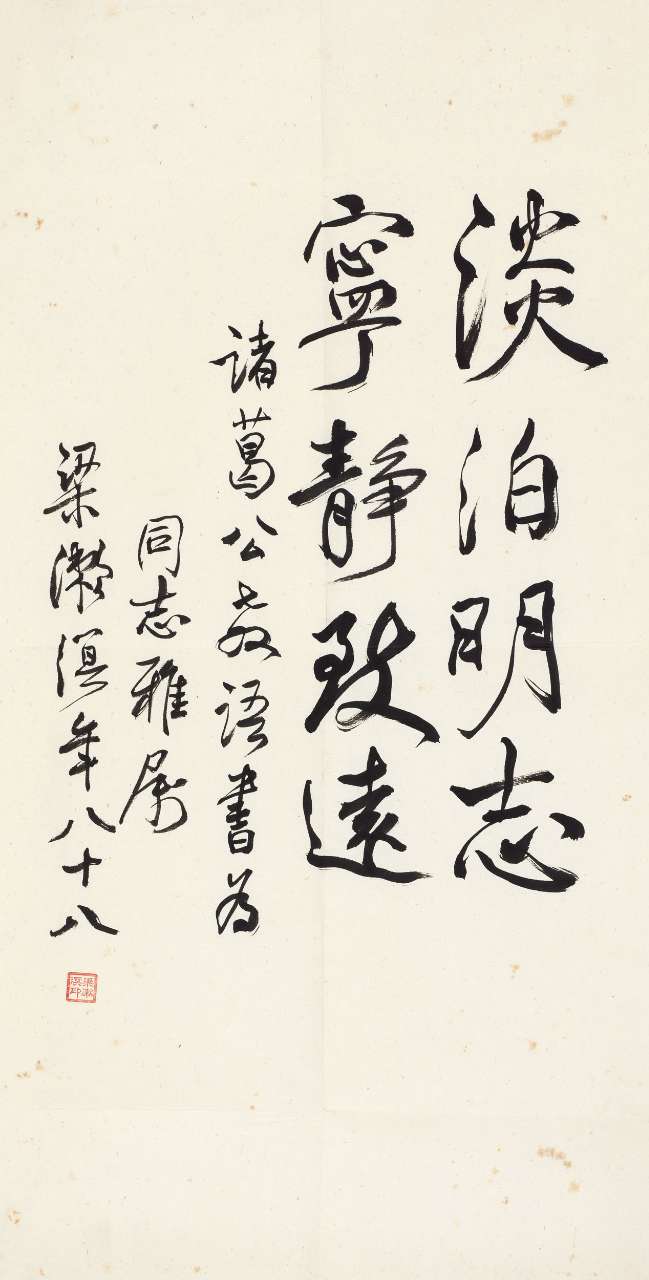 淡泊明志
寧靜致遠
諸葛公教語書為
同志雅屬
梁漱溟年八十八
梁漱溟印